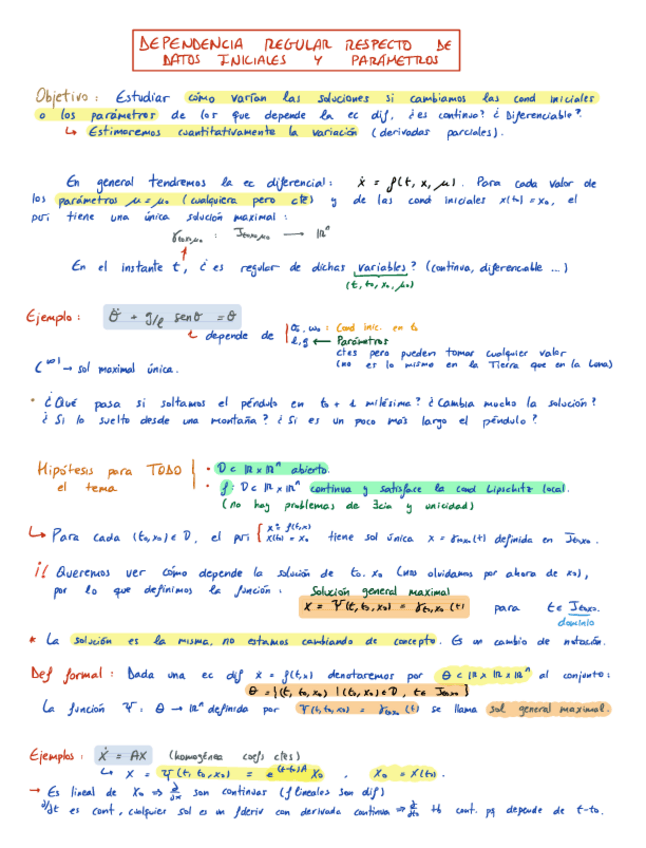 DEPENDENCIA REGULAR RESPECTO DE
DATOS INICIALES Y PARÁMETROS
Objetivo : Estudiar cómo varían las soluciones si cambiamos las cond iniciales
o los parámetros de los que depende la ec dif, ¿es continuo? ¿Diferenciable?
↳ Estimaremos cuantitativamente la variación (derivadas parciales).
En general tendremos la ec diferencial : ẋ = f(t, x, μ). Para cada valor de
los parámetros μ = μ₀ (cualquiera pero cte) y de las cond iniciales x(t₀) = x₀, el
pvi tiene una única solución maximal :
γt₀,x₀,μ₀ : It₀,x₀,μ₀ → ℝⁿ
En el instante t, ¿es regular de dichas variables? (continua, diferenciable ...)
(t, t₀, x₀, μ₀)
Ejemplo : θ̈ + g/ℓ senθ = 0
↳ depende de
θ₀, ω₀ : Cond inic. en t₀
ℓ, g ← Parámetros
ctes pero pueden tomar cualquier valor
(no es lo mismo en la Tierra que en la Luna)
C^∞) → sol maximal única.
* ¿Qué pasa si soltamos el péndulo en t₀ + 1 milésima? ¿Cambia mucho la solución?
¿Si lo suelto desde una montaña? ¿Si es un poco más largo el péndulo?
Hipótesis para TODO
el tema
• D ⊂ ℝ × ℝⁿ abierto.
• f : D ⊂ ℝ × ℝⁿ continua y satisface la cond Lipschitz local.
(no hay problemas de ∃cia y unicidad)
↳ Para cada (t₀, x₀) ∈ D, el pvi { ẋ = f(t,x)
x(t₀) = x₀ tiene sol única x = γt₀,x₀(t) definida en It₀,x₀.
¡! Queremos ver cómo depende la solución de t₀, x₀ (nos olvidamos por ahora de x₀),
por lo que definimos la función :
Solución general maximal
x = Ψ(t, t₀, x₀) = γt₀,x₀(t) para t ∈ It₀,x₀.
dominio
* La solución es la misma, no estamos cambiando de concepto. Es un cambio de notación.
Def formal : Dada una ec dif ẋ = f(t,x) denotaremos por Θ ⊂ ℝ × ℝ × ℝⁿ al conjunto:
Θ = {(t, t₀, x₀) | (t₀, x₀) ∈ D, t ∈ It₀,x₀}
La función Ψ : Θ → ℝⁿ definida por Ψ(t, t₀, x₀) = γt₀,x₀(t) se llama sol general maximal.
Ejemplos : Ẋ = AX (homogénea coefs ctes)
↳ X = Ψ(t, t₀, x₀) = e^(t-t₀)A X₀ , X₀ = X(t₀).
→ Es lineal de X₀ ⇒ ∂/∂x son continuas (f lineales son dif)
∂/∂t es cont, cualquier sol es un fderiv con derivada continua ⇒ ∂/∂t₀ tb cont. pq depende de t-t₀.